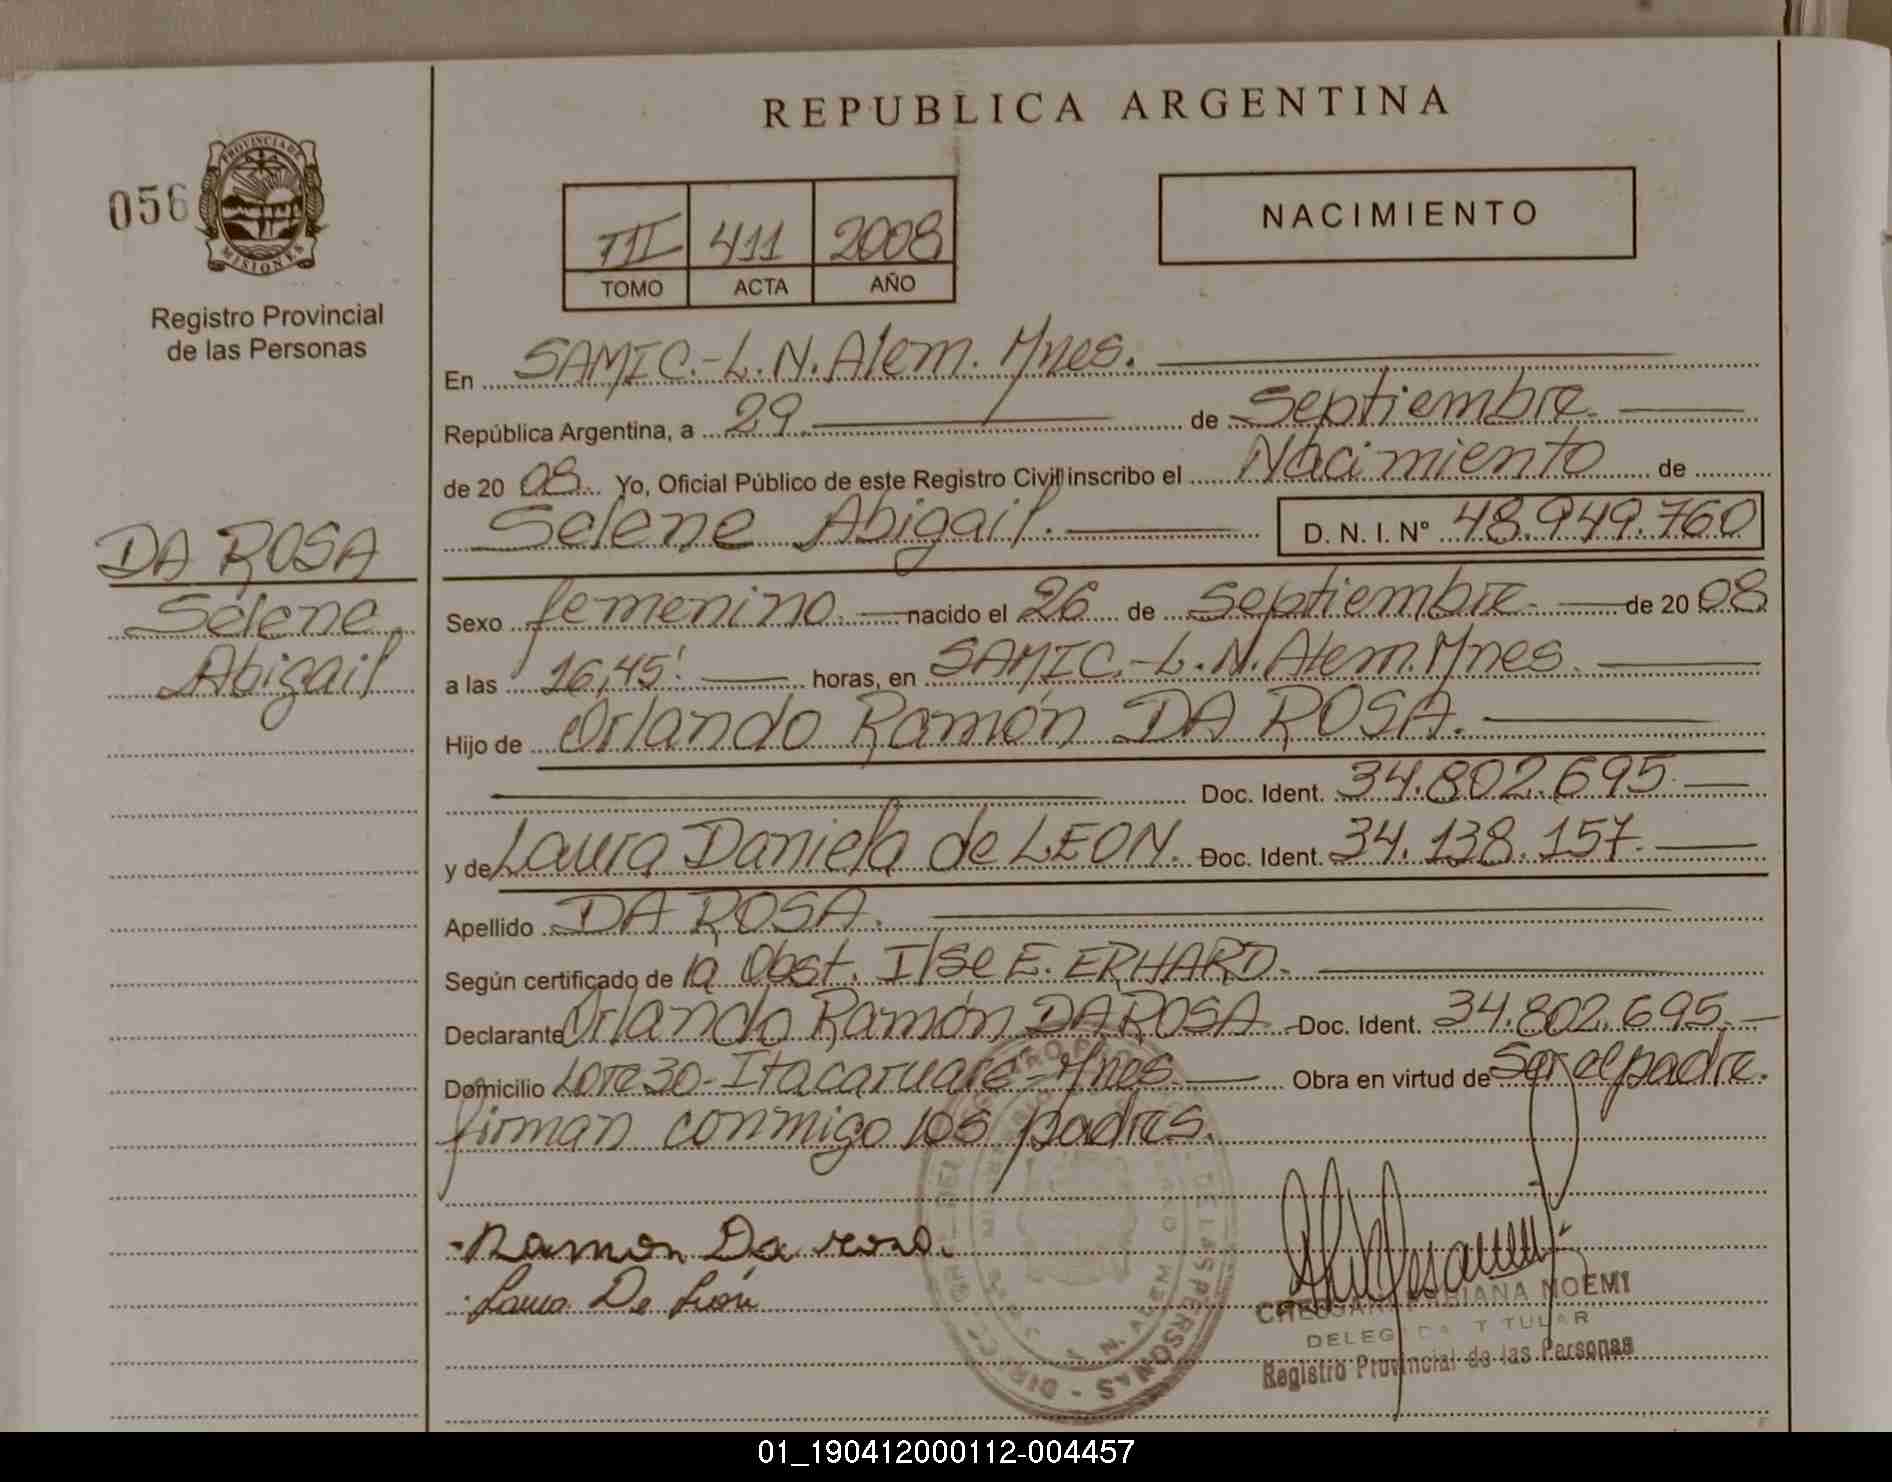 REPUBLICA ARGENTINA
056
PROVINCIA DE
MISIONES
Registro Provincial
de las Personas
DA ROSA
Selene
Abigail
III 411 2008
TOMO ACTA AÑO
NACIMIENTO
En SAMIC.-L.N.Alem. Mnes.
República Argentina, a 29 de Septiembre
de 2008. Yo, Oficial Público de este Registro Civil inscribo el Nacimiento de
Selene Abigail. D. N. I. Nº 48.949.760
Sexo femenino. nacido el 26 de Septiembre de 2008
a las 16,45' horas, en SAMIC.-L.N.Alem.Mnes.
Hijo de Orlando Ramón DA ROSA.
Doc. Ident. 34.802.695
y de Laura Daniela de LEON. Doc. Ident. 34.138.157
Apellido DA ROSA.
Según certificado de la Obst. Ilse E. ERHARD.
Declarante Orlando Ramón DA ROSA Doc. Ident. 34.802.695
Domicilio Lote 30-Itacaruaré-Mnes. Obra en virtud de Ser el padre.
firman conmigo los padres.
Ramon Da rosa.
Laura De León
FABIANA NOEMI
DELEGADA TITULAR
Registro Provincial de las Personas
01_190412000112-004457